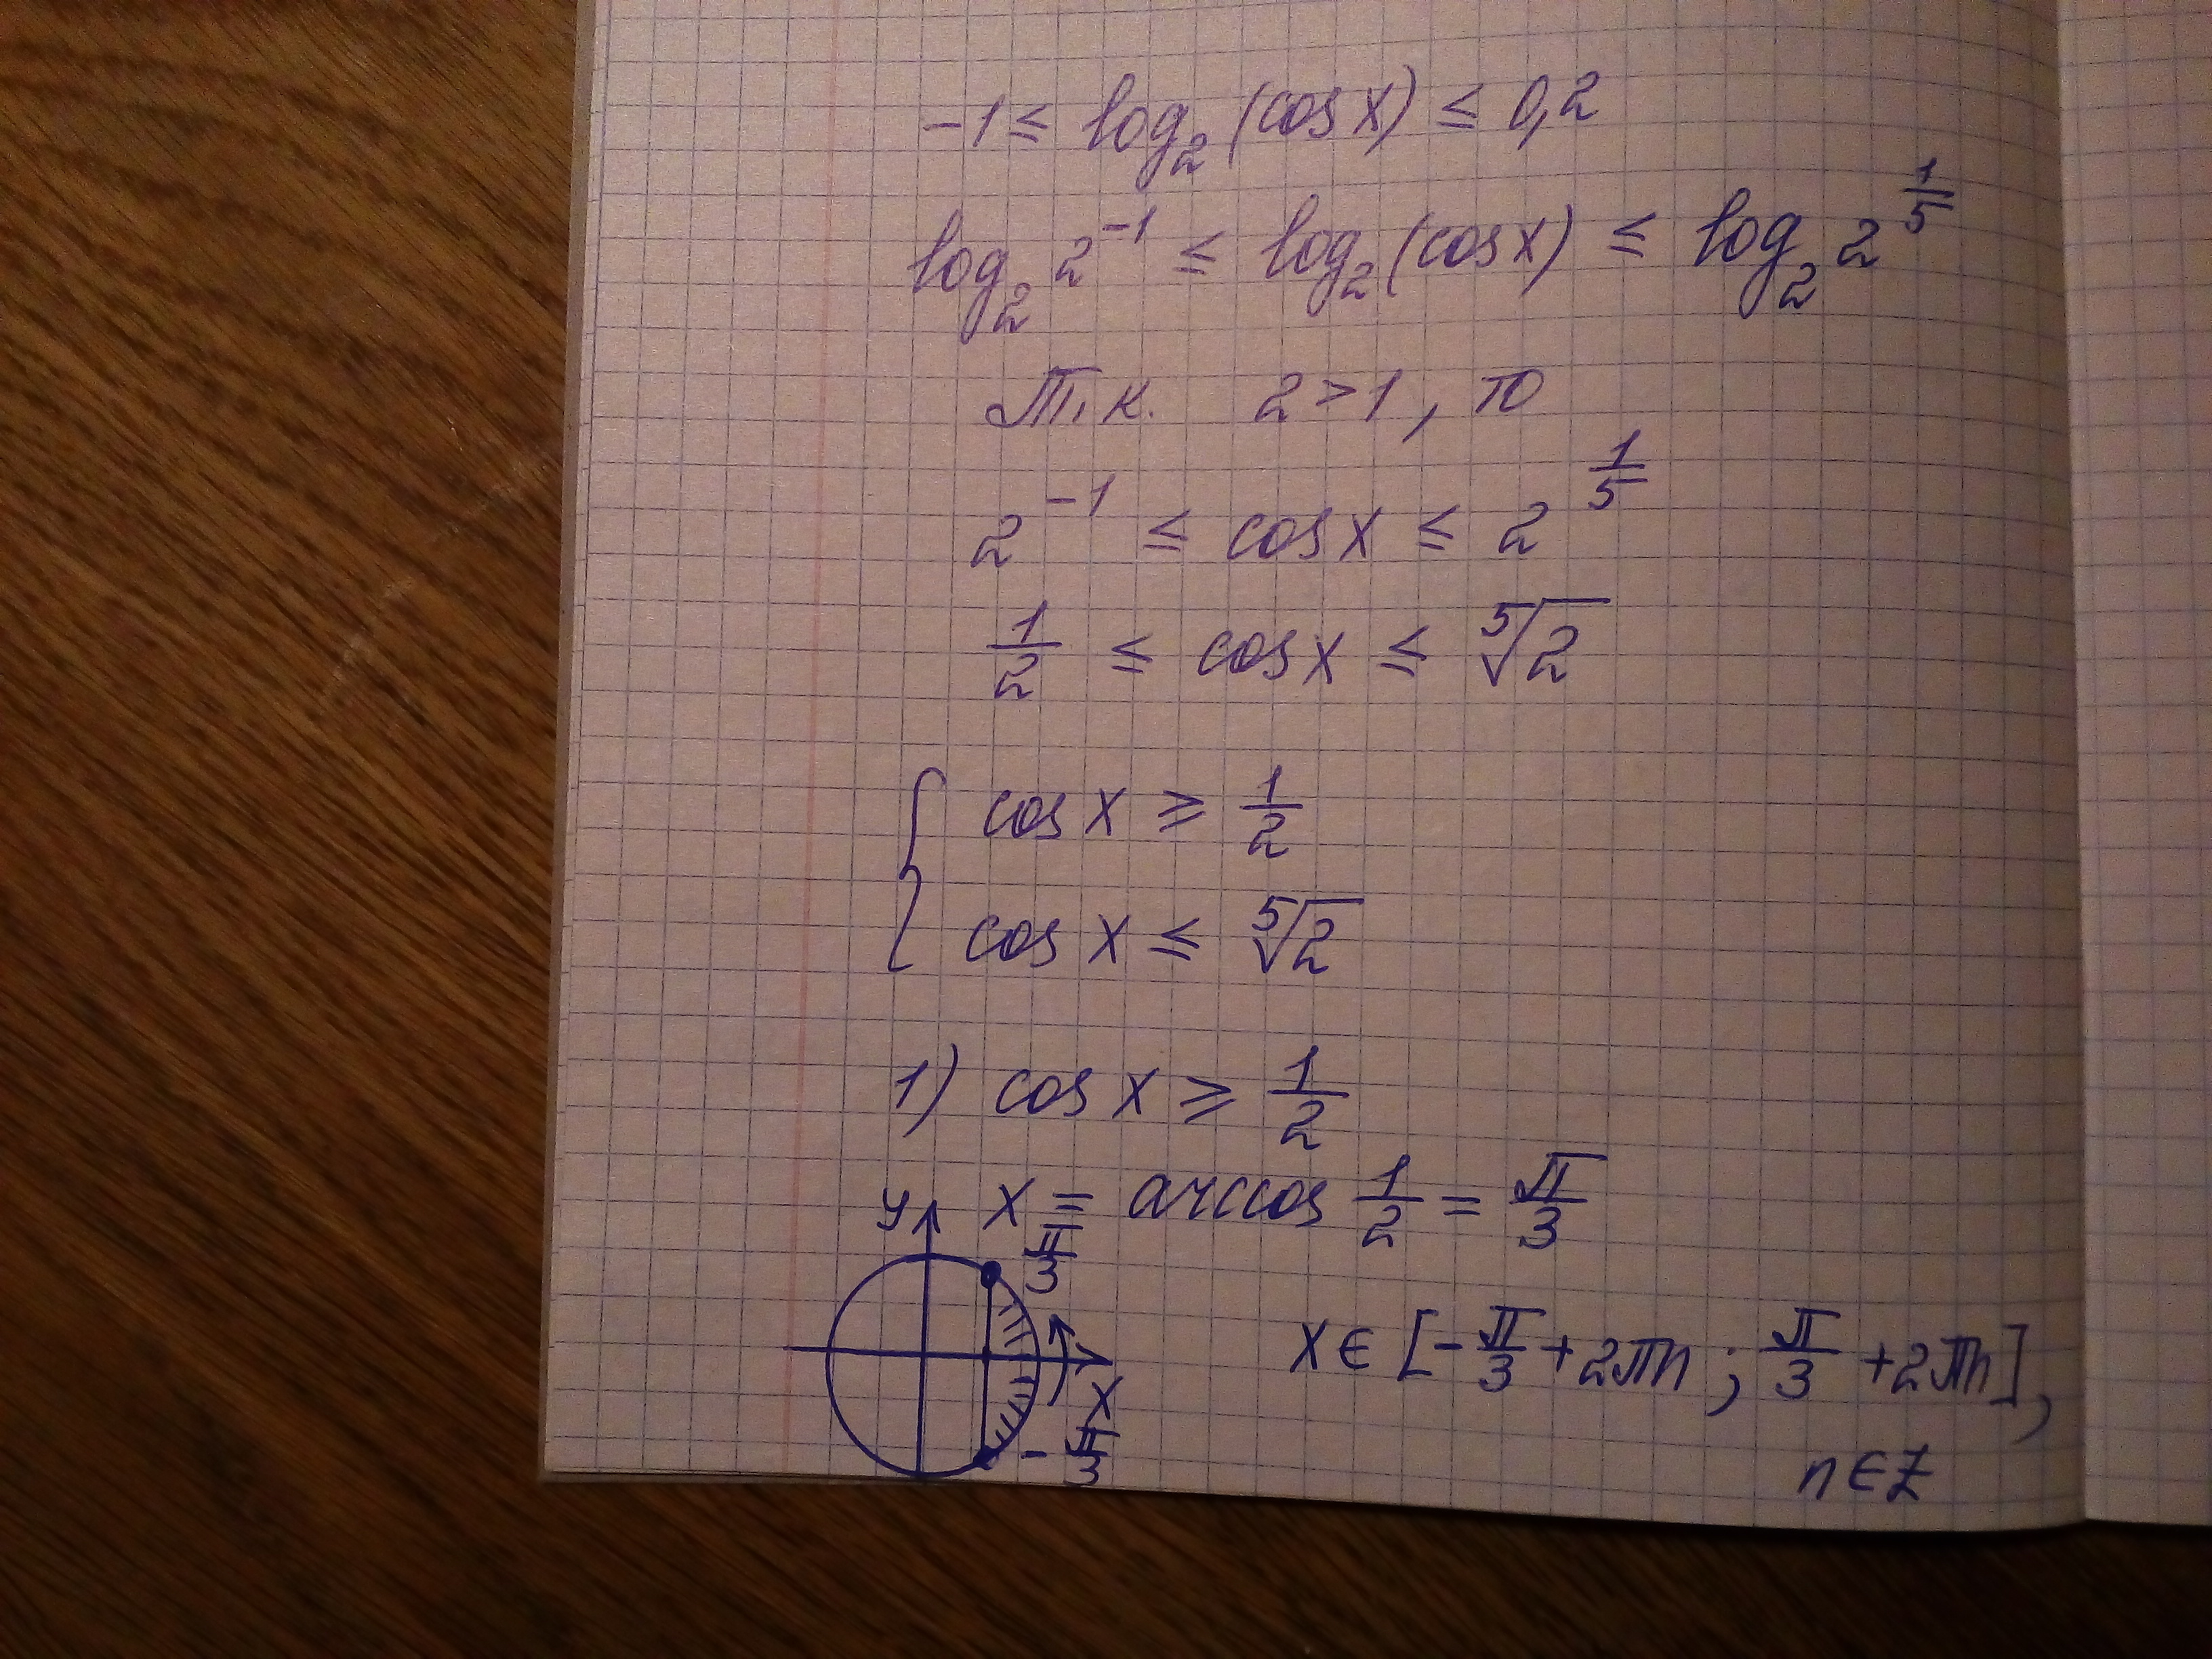 -1 ≤ log₂ (cos x) ≤ 0,2
log₂ 2⁻¹ ≤ log₂ (cos x) ≤ log₂ 2^(1/5)
Т.к. 2 > 1, то
2⁻¹ ≤ cos x ≤ 2^(1/5)
1/2 ≤ cos x ≤ ⁵√2
{ cos x ≥ 1/2
cos x ≤ ⁵√2
1) cos x ≥ 1/2
x = arccos 1/2 = π/3
y
π/3
x ∈ [-π/3 + 2πn ; π/3 + 2πn],
x
-π/3
n ∈ Z